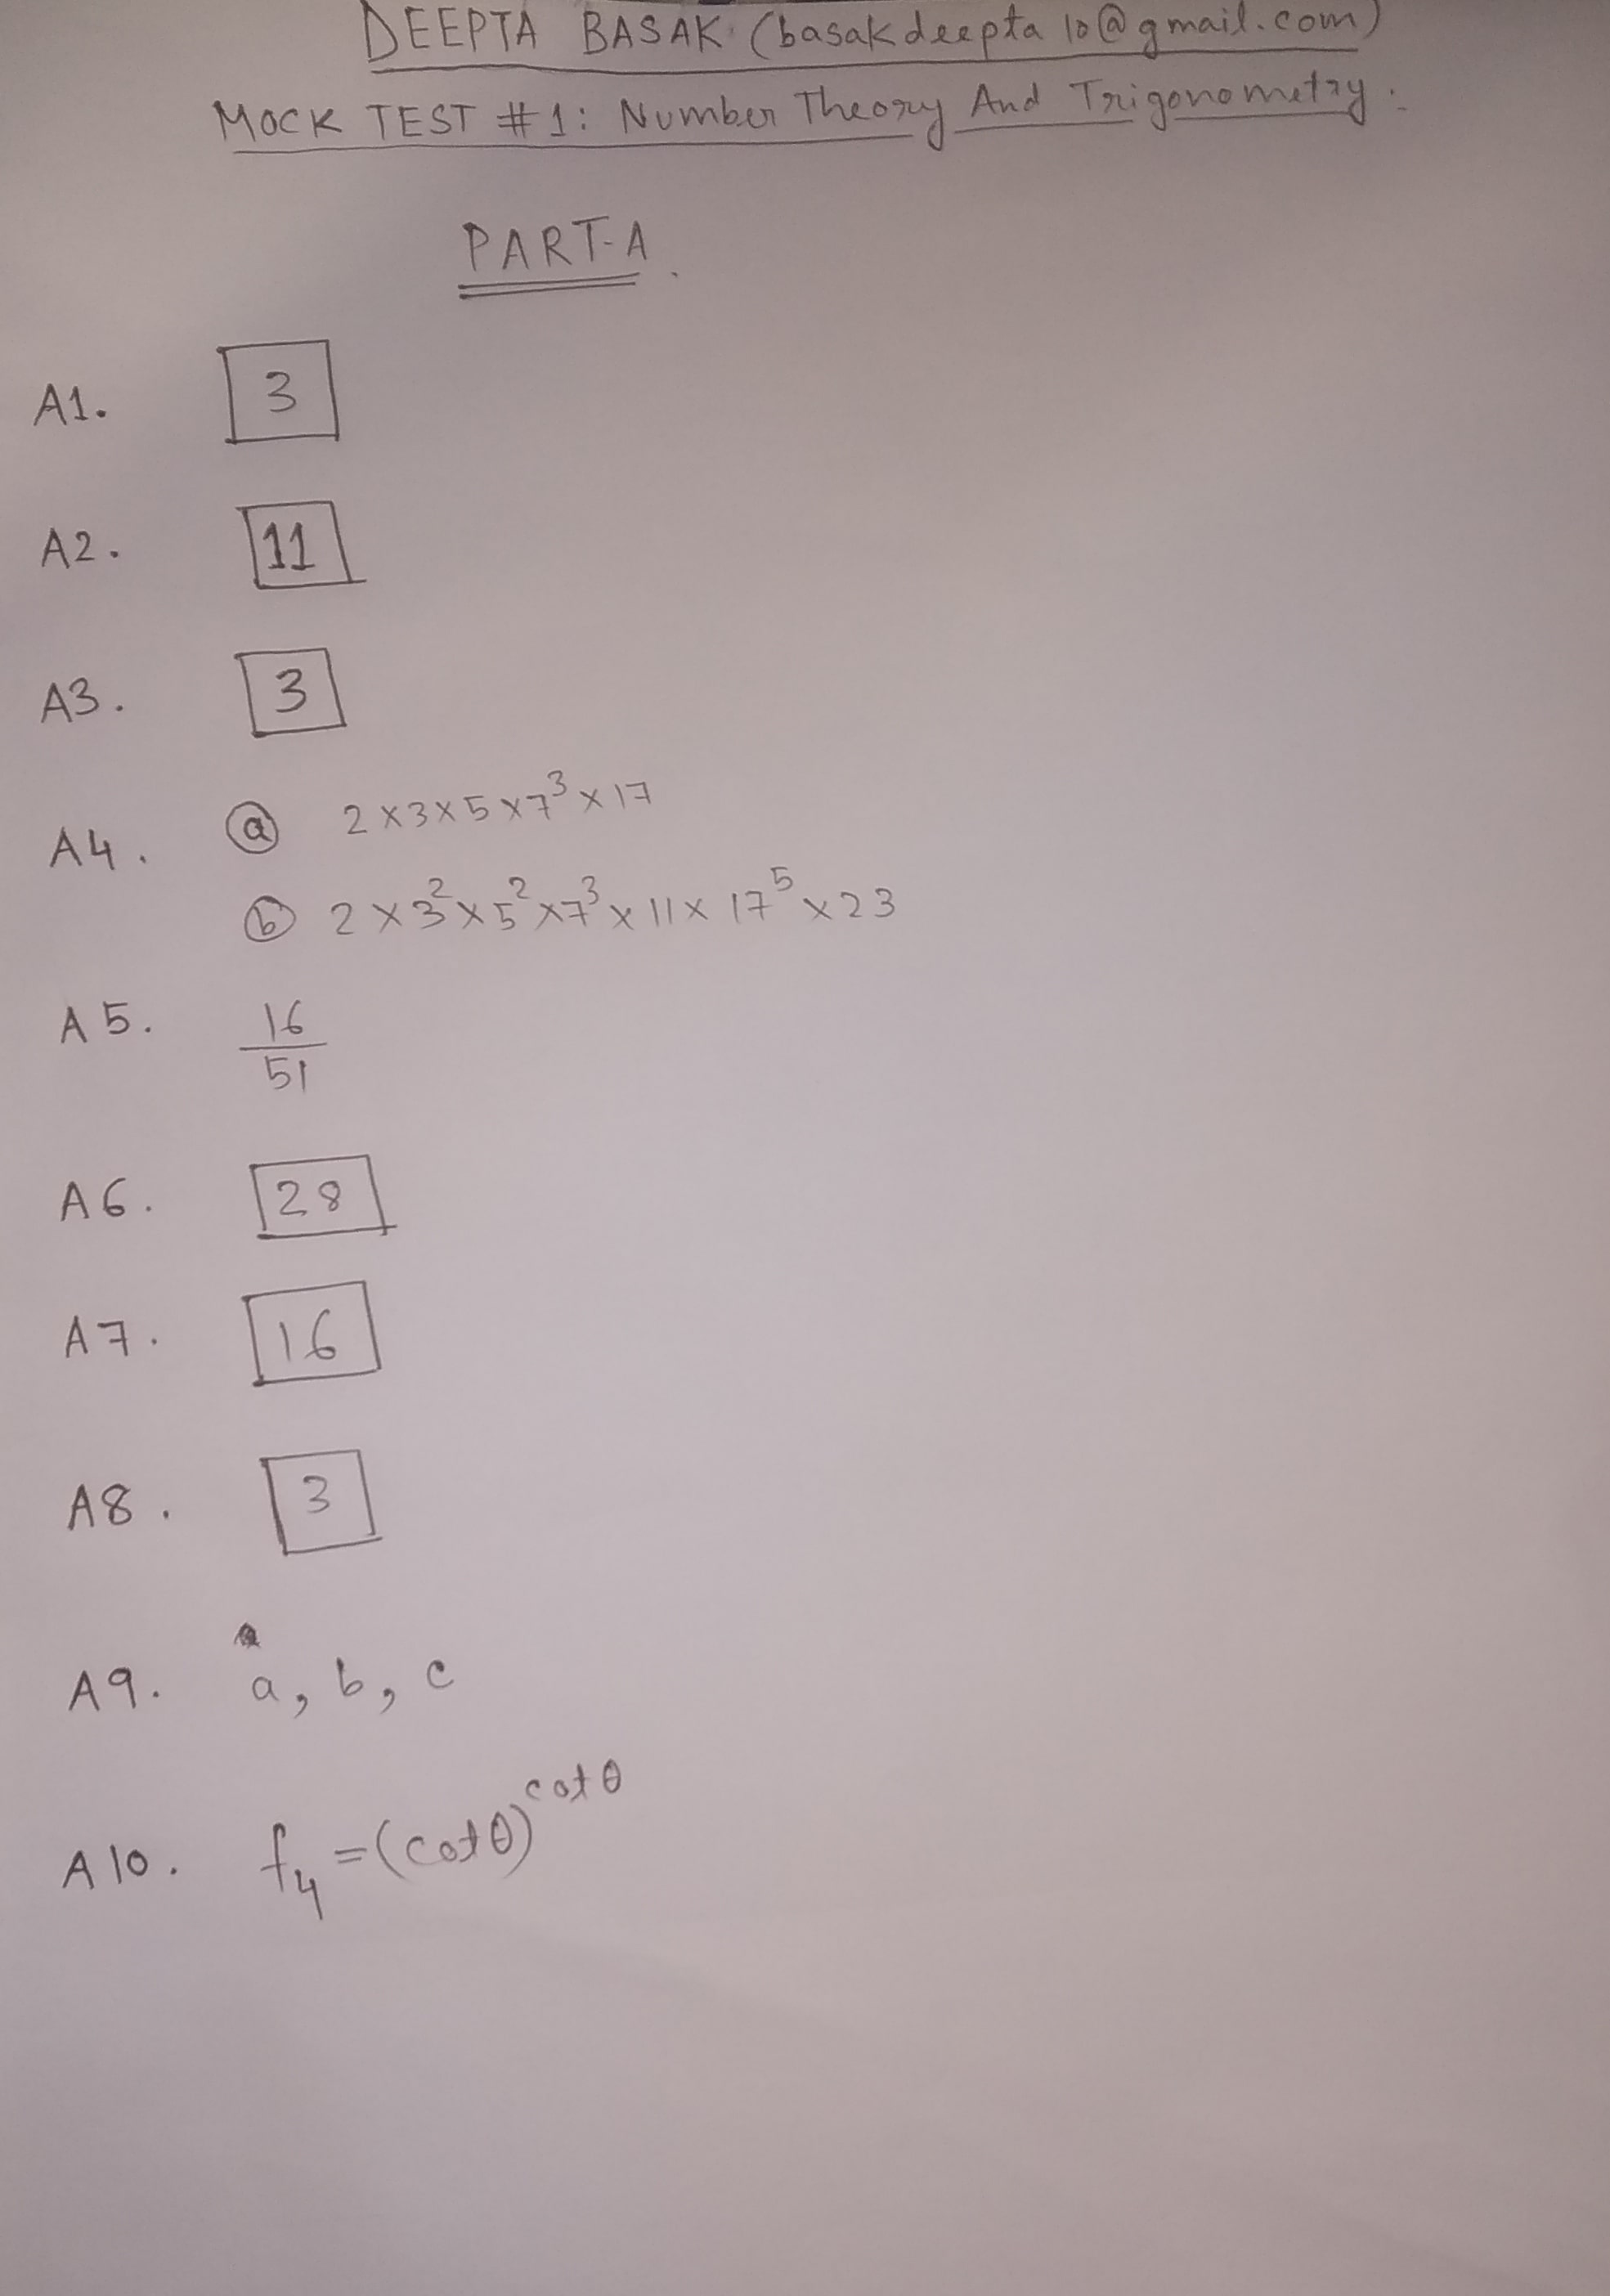 DEEPTA BASAK (basakdeepta10@gmail.com)
MOCK TEST #1: Number Theory And Trigonometry.
PART-A.
A1. 3
A2. 11
A3. 3
A4. (a) 2×3×5×7³×17
(b) 2×3²×5²×7³×11×17⁵×23
A5. 16/51
A6. 28
A7. 16
A8. 3
A9. a, b, c
A10. f₄ = (cotθ)^cotθ